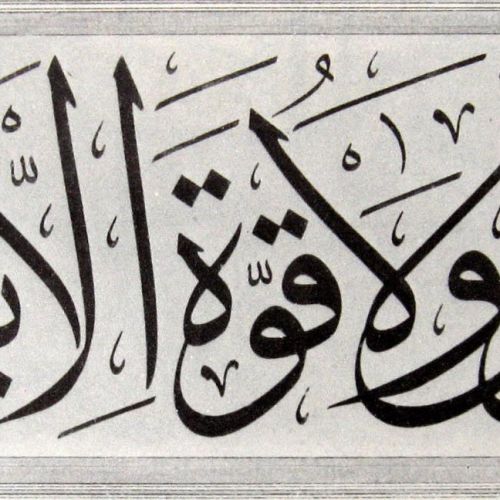 وَلَا قُوَّةَ اِلَّا